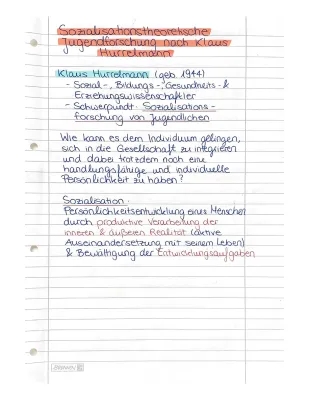 Sozialisationstheoretische
Jugendforschung nach Klaus
Hurrelmann
Klaus Hurrelmann (geb. 1944)
- Sozial-, Bildungs-, Gesundheits- &
Erziehungswissenschaftler
- Schwerpunkt: Sozialisations-
forschung von Jugendlichen
Wie kann es dem Individuum gelingen,
sich in die Gesellschaft zu integrieren
und dabei trotzdem noch eine
handlungsfähige und individuelle
Persönlichkeit zu haben?
Sozialisation:
Persönlichkeitsentwicklung eines Menschen
durch produktive Verarbeitung der
inneren & äußeren Realität (aktive
Auseinandersetzung mit seinem Leben)
& Bewältigung der Entwicklungsaufgaben